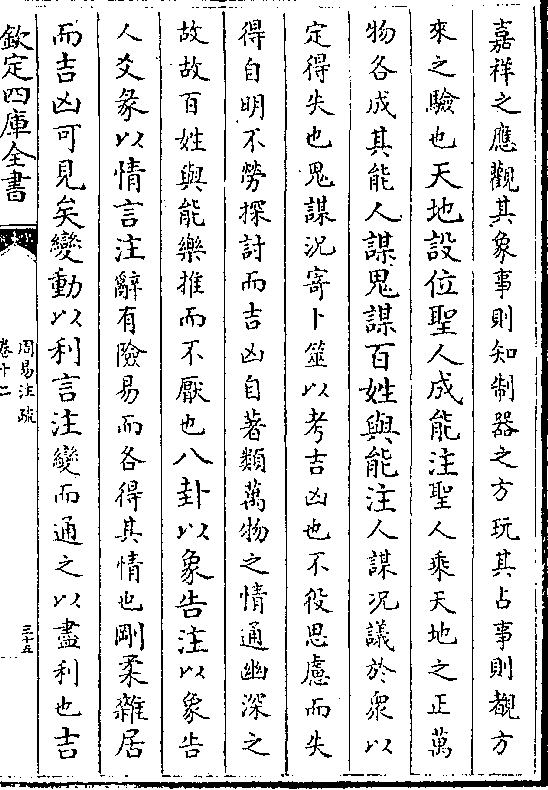 嘉祥之應觀其象事則知制器之方玩其占事則覩方
來之驗也天地設位聖人成能注聖人乘天地之正萬
物各成其能人謀鬼謀百姓與能注人謀況議於衆以
定得失也鬼謀況寄卜筮以考吉凶也不役思慮而失
得自明不勞探討而吉凶自著類萬物之情通幽深之
故故百姓與能樂推而不厭也八卦以象告注以象告
人爻彖以情言注辭有險易而各得其情也剛柔雜居
而吉凶可見矣變動以利言注變而通之以盡利也吉
欽定四庫全書
周易注疏
卷十二
三十五